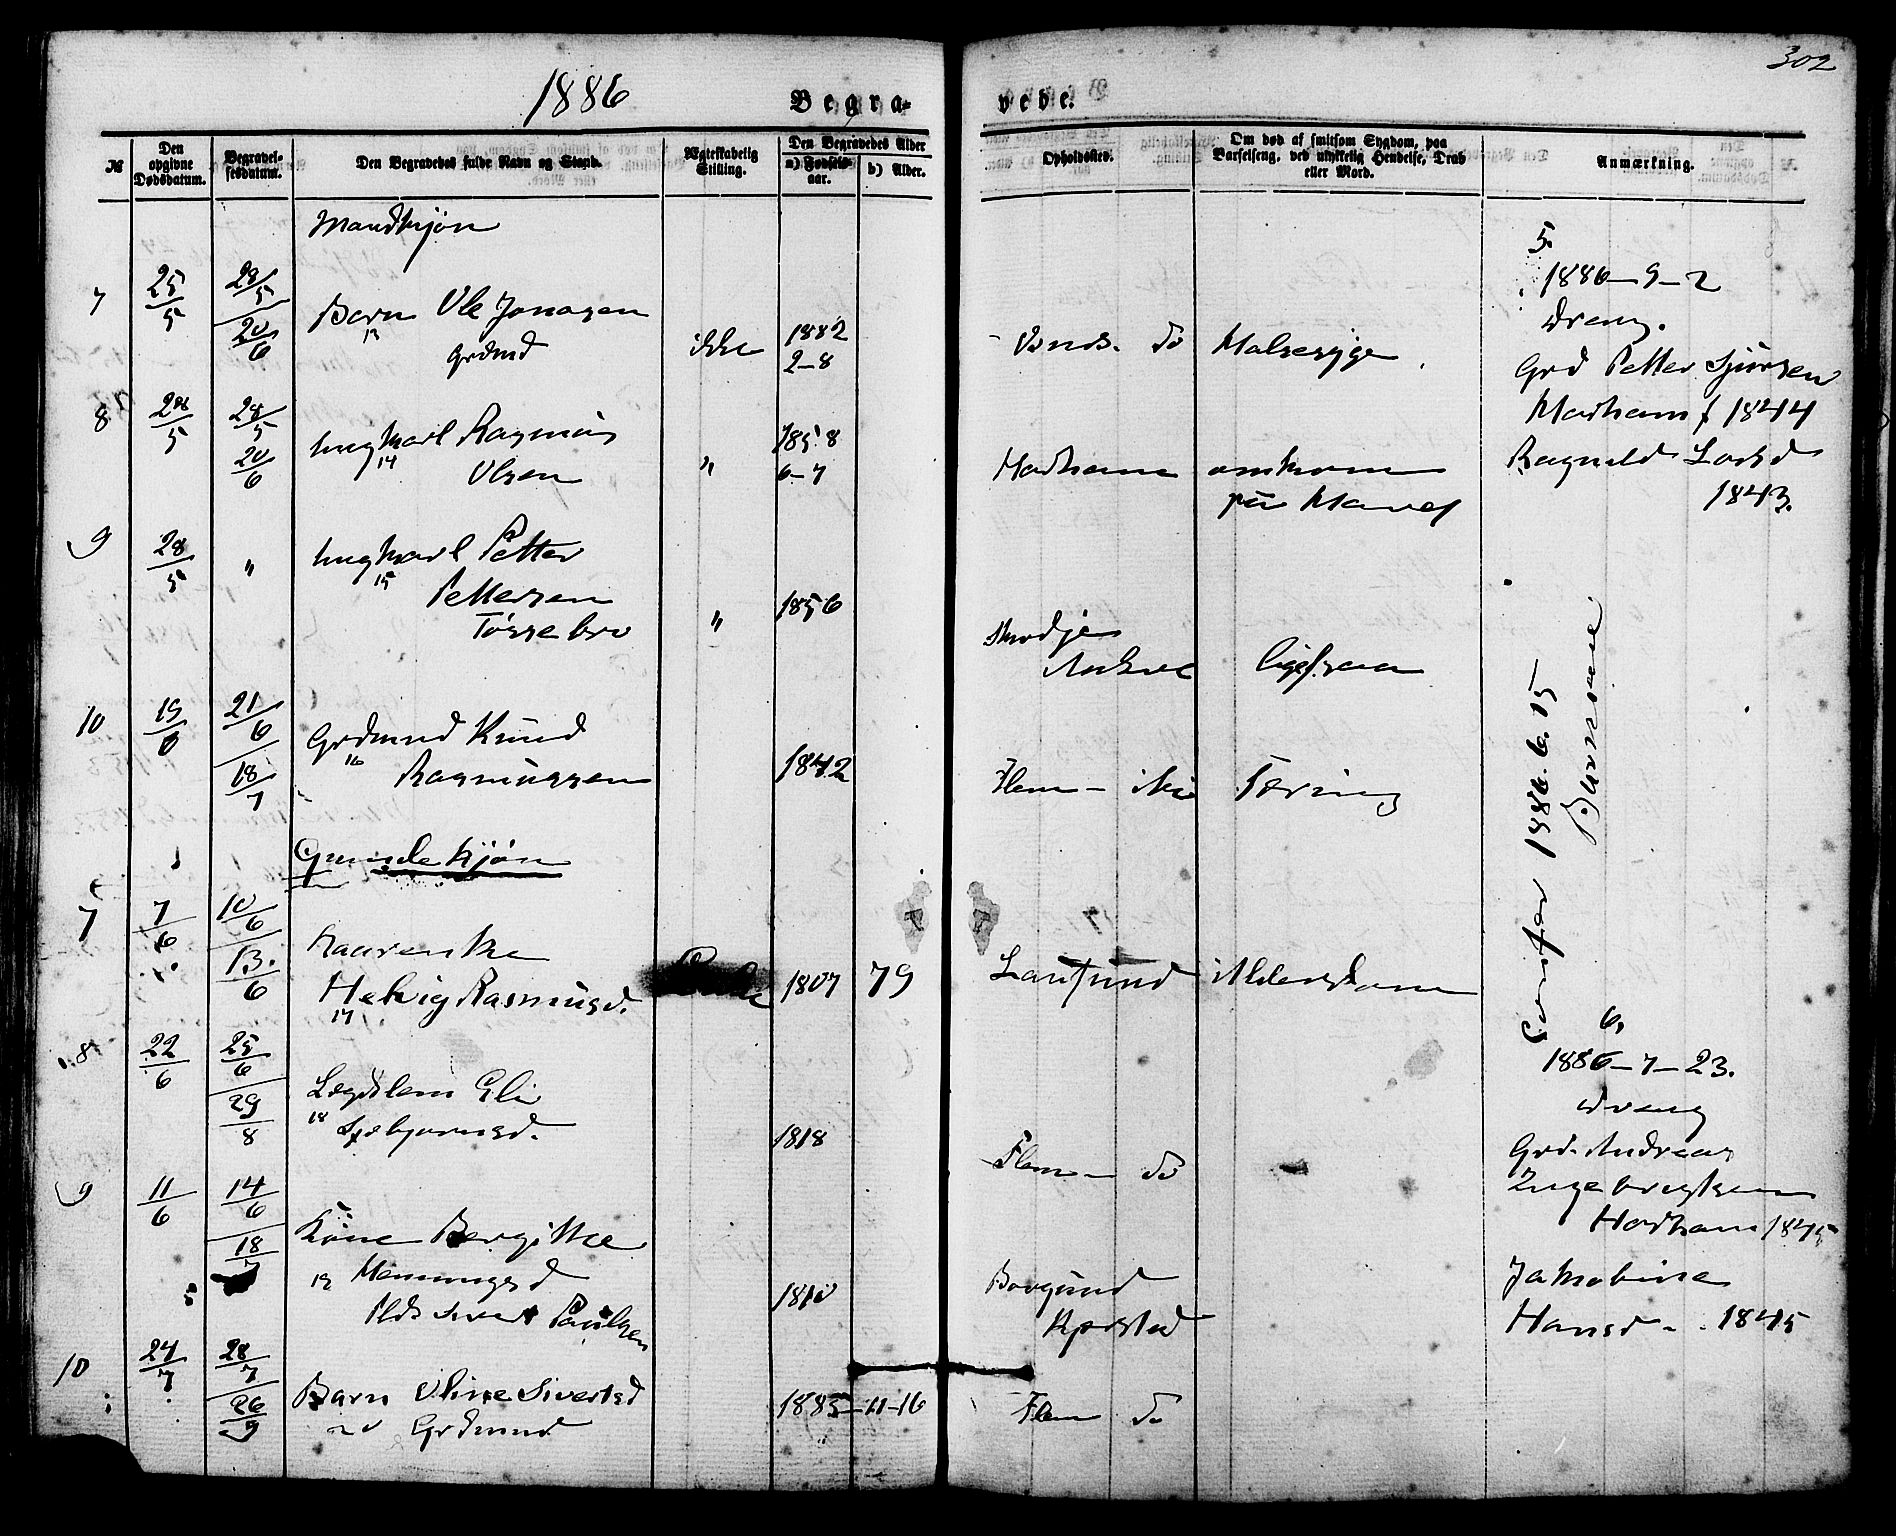 302
1886
Begra-
vede.
№
Den opgivne Dødsdatum.
Begravelsesdatum.
Den Begravedes fulde Navn og Stand.
Ægteskabelig Stilling.
Den Begravedes Alder
a) Fødselsaar.
b) Alder.
Opholdssted.
Om død af smitsom Sygdom, paa Barselseng, ved ulykkelig Hendelse, Drab eller Mord.
Anmærkning.
Mandkjøn
7 25/5 28/5 20/6 Barn Ole Jonasen
13 Grdmd ikke 1882 2-8 do Halsesyge
8 28/5 28/5 20/6 Ungkarl Rasmus
14 Olsen " 1858 6-7 Harham omkom
paa Havet
9 28/5 " Ungkarl Petter
15 Pettersen
Tøssebro " 1856 Skodje
ligesaa
10 19/6 21/6 18/7 Grdmand Knud
16 Rasmussen 1842 Flem - Tæring
Qvindekjøn
7 7/6 10/6 13/6 Kaarenke
Helvig Rasmusd. 1807 79 Alderdom
17
8 22/6 25/6 29/8 Lægdslem Eli
18 1818 Flem - do
9 11/6 14/6 18/7 Kone Bergitte
19 Hemmingsd
Sivert Paulsen 1810 Borgund
10 24/7 28/7 26/9 Barn Oline Sivertsd
20 Grdmand 1885-11-16 Flem do
5.
1886-9-2
dreng.
Grd Petter Sjursen
Harham f 1844
Ragnild Larsd
1843.
1886.6.15
6,
1886-7-23.
dreng
Grd. Andreas
Ingebrigtsen
Harham 1845
Jakobine
Hansd - 1845